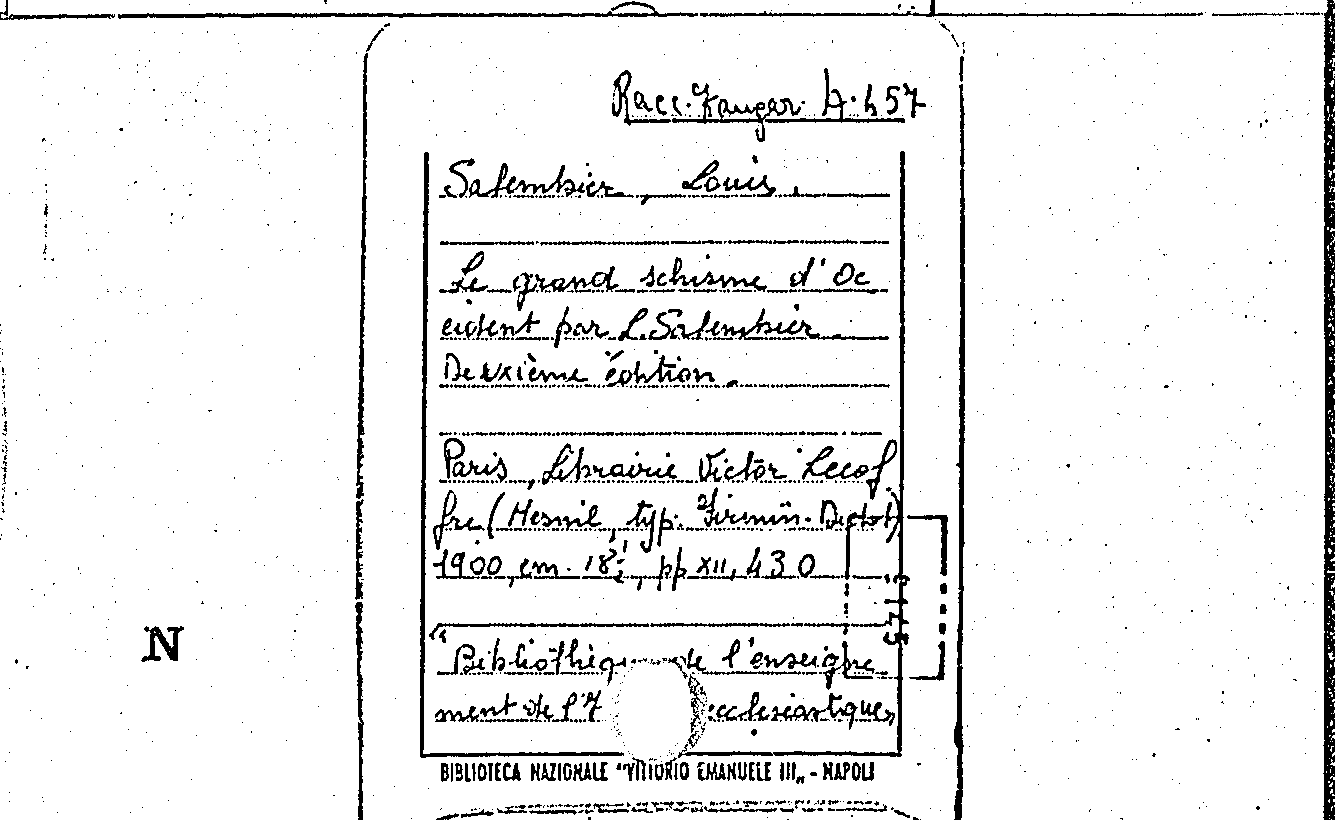 Racc. Zangar. A. 457
Salembier, Louis.
Le grand schisme d'Oc
cident par L. Salembier
Deuxième édition.
Paris, Librairie Victor Lecof
fre (Mesnil, typ. Firmin-Didot)
1900, cm. 18½, pp XII, 430
"Bibliothèque de l'enseigne
ment de l' ecclesiastique„
N
BIBLIOTECA NAZIONALE "VITTORIO EMANUELE III„ - NAPOLI